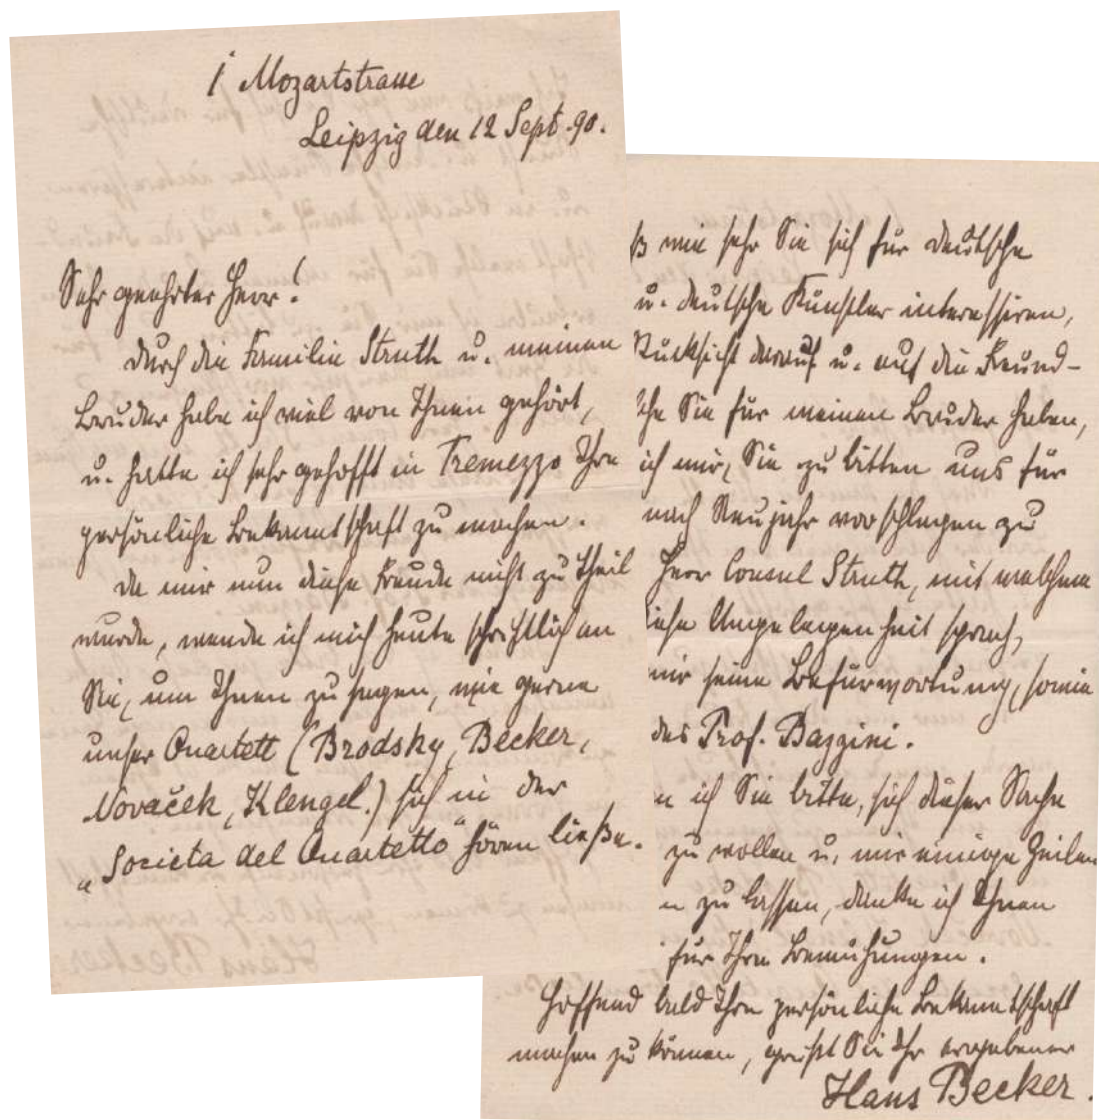 1 Mozartstrasse
Leipzig den 12 Sept. 90.
Sehr geehrter Herr!
Durch die Familie Struth u. meinen
Bruder habe ich viel von Ihnen gehört,
u. hatte ich sehr gehofft in Tremezzo Ihre
persönliche Bekanntschaft zu machen.
Da mir nun diese Freude nicht zu Theil
wurde, wende ich mich heute schriftlich an
Sie, um Ihnen zu sagen, wie gerne
unser Quartett (Brodsky, Becker,
Nováček, Klengel.) sich in der
„Societa del Quartetto“ hören ließe.
ß wie sehr Sie sich für deutsche
u. deutsche Künstler interessiren,
Rücksicht darauf u. auf die Freund-
che Sie für meinen Bruder haben,
ich mir, Sie zu bitten uns für
nach Neujahr vorschlagen zu
Herr Consul Struth, mit welchem
iese Angelegenheit sprach,
mir seine Befürwortung, sowie
des Prof. Bazzini.
n ich Sie bitte, sich dieser Sache
zu wollen u. mir einige Zeilen
n zu lassen, danke ich Ihnen
für Ihre Bemühungen.
Hoffend bald Ihre persönliche Bekanntschaft
machen zu können, grüßt Sie Ihr ergebener
Hans Becker.